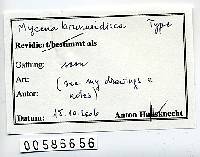 Mycena brunneidisca Type
Revidiert/bestimmt als
Gattung:
Art: (see my drawings &
Autor: notes)
Datum: 15.10.2006 Anton Hausknecht
00586656